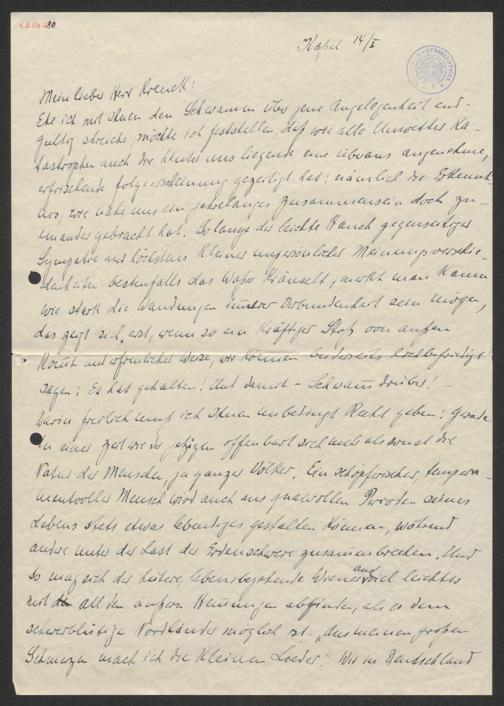 Kassel 14/I
Mein lieber Herr Krenek!
Ehe ich mit Ihnen den Schwamm über jene Angelegenheit end-
gültig streiche, möchte ich feststellen, daß wie alle Unwetter Ka-
tastrophen auch die hinter uns liegende eine überaus angenehme,
erfrischende Folgeerscheinung gezeitigt hat: nämlich die Erkennt-
nis, wie nahe uns ein jahrelanges Zusammensein doch zu-
einander gebracht hat. Solange der leichte Hauch gegenseitiger
Sympathie und höchstens kleiner unpersönlicher Meinungsverschie-
denheiten bestenfalls das Wasser kräuselt, merkt man kaum
wie stark die Wandungen innerer Verbundenheit sein mögen,
das zeigt sich erst, wenn so ein kräftiger Stoß von außen
kommt und erfreulicher Weise, wir können beiderseits hochbefriedigt
sagen: Es hat gehalten! Und damit – Schwamm drüber! –
Darin freilich muß ich Ihnen unbedingt Recht geben: Gerade
in einer Zeit wie der jetzigen offenbart sich mehr als sonst die
Natur der Menschen, ja ganzer Völker. Ein schöpferischer, tempera-
mentvoller Mensch wird auch aus qualvollen Perioden seines
Lebens stets etwas lebendiges gestalten können, während
andere unter der Last der Erdenschwere zusammenbrechen. Und
so mag sich der heitere, lebensbejahende Wiener auch viel leichter
mit all den äußern Hemmungen abfinden, als es dem
schwerblütige Nordländer möglich ist. „Aus meinen großen
Schmerzen mach ich die kleinen Lieder." Wir in Deutschland